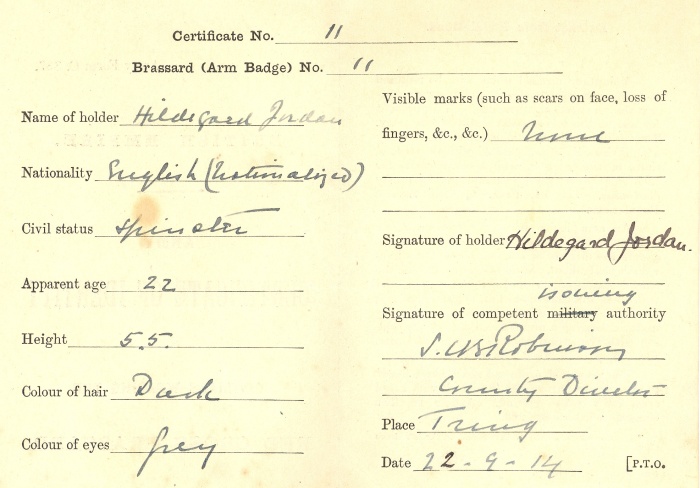 Certificate No. 11
Brassard (Arm Badge) No. 11
Name of holder Hildegard Jordan
Nationality English (Nationalized)
Civil status Spinster
Apparent age 22
Height 5.5.
Colour of hair Dark
Colour of eyes grey
Visible marks (such as scars on face, loss of
fingers, &c., &c.) None
Signature of holder Hildegard Jordan.
issuing
Signature of competent military authority
Robinson
County Director
Place Tring
Date 22-9-14 [P.T.O.